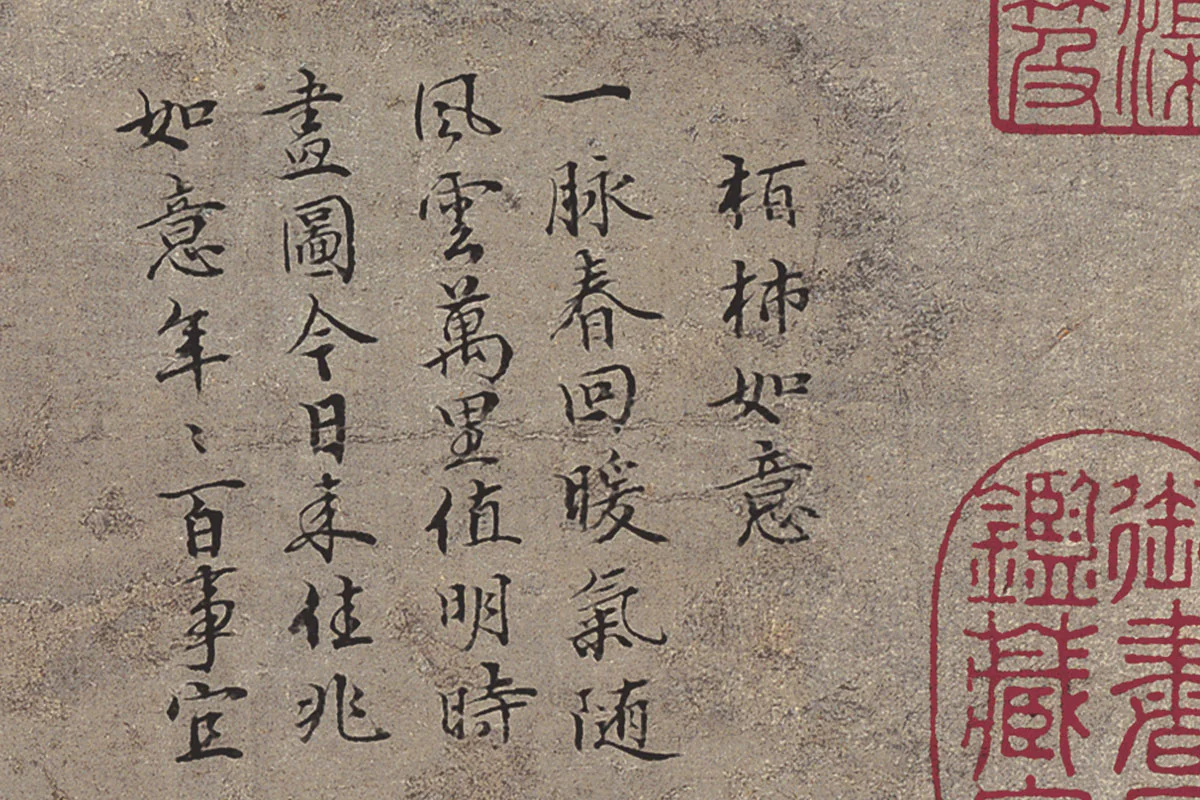 渠
笈
御書
鑑藏
栢柿如意
一脉春回暖氣随
風雲萬里值明時
畫圖今日来佳兆
如意年〻百事宜